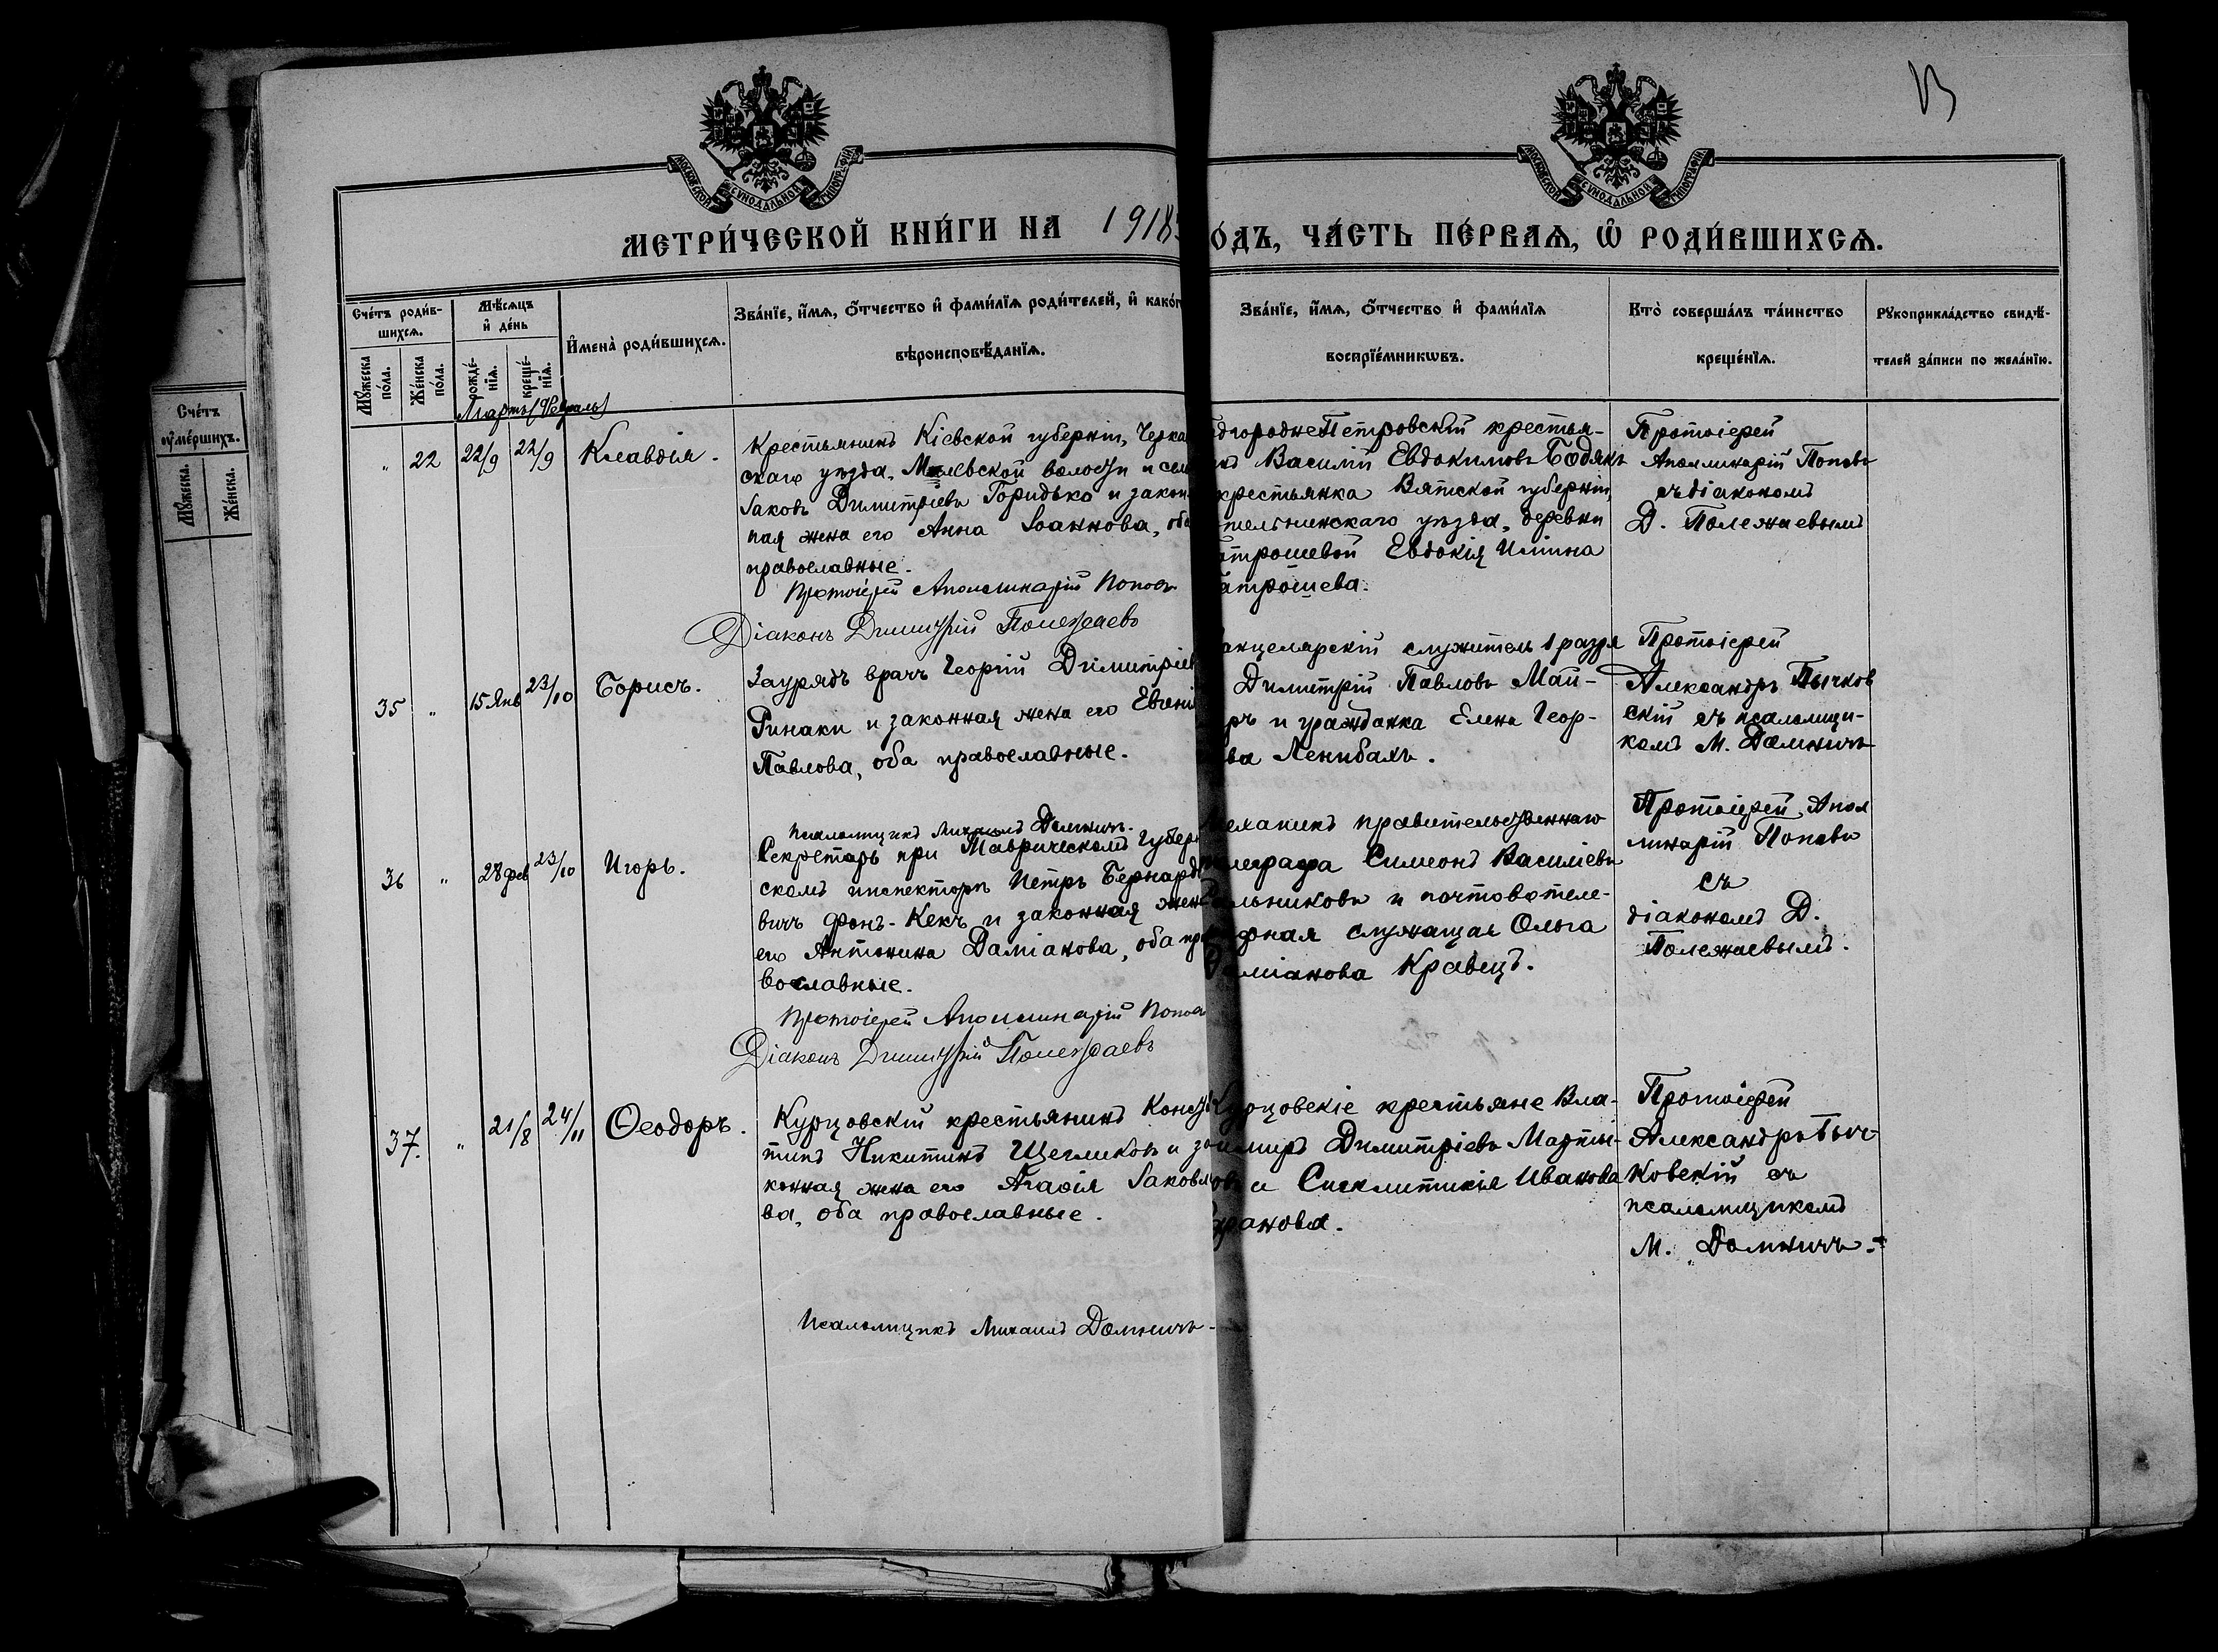 МОСКОВСКОЙ СѴНОДАЛЬНОЙ ТИПОГРАФІИ
МОСКОВСКОЙ СѴНОДАЛЬНОЙ ТИПОГРАФІИ
МЕТРИ́ЧЕСКОЙ КНИ́ГИ НА 1918
О́ДЪ, ЧА́СТЬ ПЕ́РВАѦ, Ѽ РОДИ́ВШИХСѦ.
Сче́тъ роди́в-
шихсѧ.
Мꙋ́жеска по́ла.
Же́нска по́ла.
Мѣ́сѧцъ
и҆ де́нь
рожде́-нїѧ.
креще́-нїѧ.
И҆мена̀ роди́вшихсѧ.
Зва́нїе, и҆́мѧ, ѻ҆́тчество и҆ фами́лїѧ роди́телей, и҆ како́г
вѣроисповѣ́данїѧ.
Зва́нїе, и҆́мѧ, ѻ҆́тчество и҆ фами́лїѧ
воспрїе́мникѡвъ.
Кто̀ соверша́лъ та́инство
креще́нїѧ.
Рꙋкоприкла́дство свидѣ́-
телей за́писи по жела́нїю.
Сче́тъ
ᲂу҆ме́ршихъ.
Мꙋ́жеска.
Же́нска.
Мартъ (Февраль)
" 22 22/9 22/9 Клавдія.
Крестьянинъ Кіевской губерніи, Черка
скаго уѣзда, Млевской волости и сел
Іаковъ Димитріевъ Горидько и закон
ная жена его Анна Іоаннова, оба
православные.
Протоіерей Аполлинарій Попов
Діаконъ Димитрій Полежаевъ
дгородне-Петровскій крестья-
нъ Василій Евдокимовъ Бодякъ
крестьянка Вятской губерніи,
тельнинскаго уѣзда, деревни
атрошевой Евдокія Иліина
атрошева.
Протоіерей
Аполлинарій Поповъ
съ діакономъ
Д. Полежаевымъ
35 " 15 Янв 23/10 Борисъ.
Заурядъ врачъ Георгій Димитріев
Ринаки и законная жена его Евгені
Павлова, оба православные.
Псаломщикъ Михаилъ Домничъ.
анцелярскій служитель 1 разря
Димитрій Павловъ Май-
ръ и гражданка Елена Геор-
ва Ленибахъ.
Протоіерей
Александръ Бычков
скій съ псаломщи-
комъ М. Домничъ
36 " 28 фев 23/10 Игорь.
Секретарь при Таврическомъ Губерн
скомъ инспекторѣ Петръ Бернардо
вичъ фонъ-Кекъ и законная жена
его Антонина Даміанова, оба пра
вославные.
Протоіерей Аполлинарій Попов
Діаконъ Димитрій Полежаевъ
еханикъ правительственнаго
телеграфа Симеонъ Василіевъ
льниковъ и почтовотеле-
рафная служащая Ольга
Даміанова Кравецъ.
Протоіерей Апол
линарій Поповъ
съ
діакономъ Д.
Полежаевымъ.
37. " 21/8 24/11 Ѳеодоръ.
Курцовскій крестьянинъ Конст
тинъ Никитинъ Щегликовъ и за
конная жена его Агаѳія Іаковл
ва, оба православные.
Псаломщикъ Михаилъ Домничъ
Курцовскіе крестьяне Вла-
имиръ Димитріевъ Марты-
овъ и Сигклитикія Иванова
Баранова.
Протоіерей
Александръ Быч-
ковскій съ
псаломщикомъ
М. Домничъ.